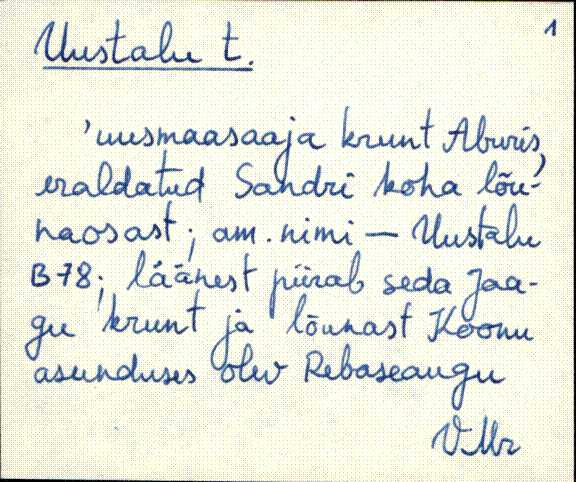 1
Uustalu t.
'uusmaasaaja krunt Aburis,
eraldatud Sandri koha lõu-
naosast; am. nimi — Uustalu
B78; läänest piirab seda Jaa-
gu krunt ja lõunast Koonu
asunduses olev Rebaseaugu
VMr